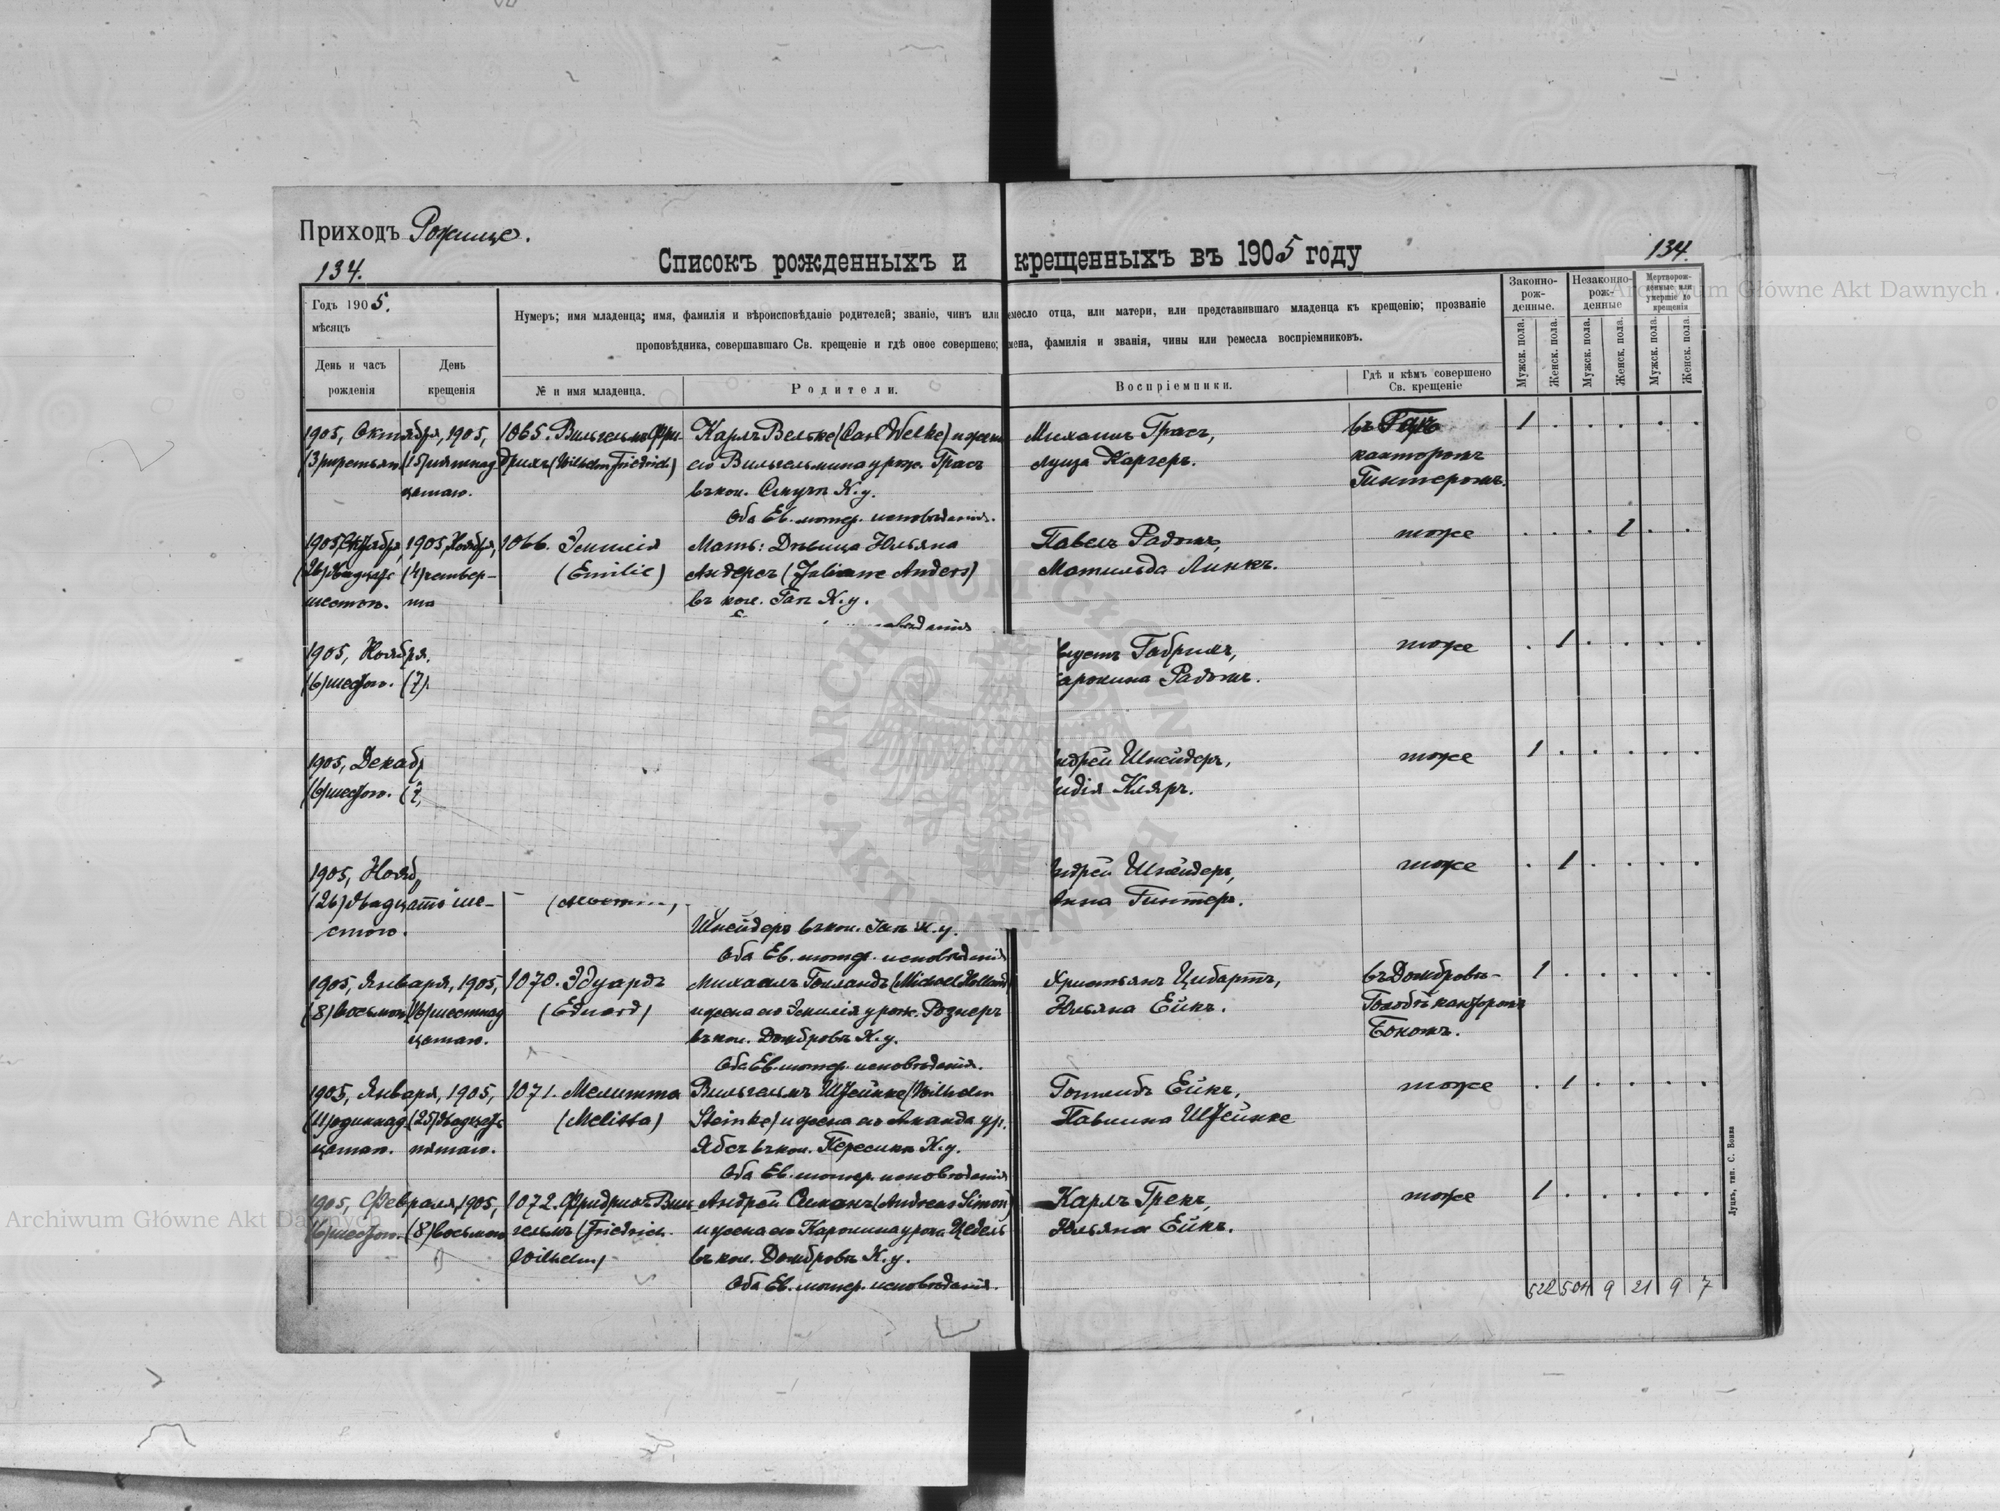 Приходъ Рожище.
134.
Списокъ рожденныхъ и крещенныхъ въ 1905 году
134.
Годъ 1905.
мѣсяцъ
День и часъ рожденія
День крещенія
Нумеръ; имя младенца; имя, фамилія и вѣроисповѣданіе родителей; званіе, чинъ или ремесло отца, или матери, или представившаго младенца къ крещенію; прозваніе
проповѣдника, совершавшаго Св. крещеніе и гдѣ оное совершено; имена, фамилія и званія, чины или ремесла воспріемниковъ.
№ и имя младенца.
Родители.
Воспріемники.
Гдѣ и кѣмъ совершено Св. крещеніе
Законно-рож-денные.
Незаконно-рож-денные
Мертворож-денные или умершіе до крещенія
Мужск. пола.
Женск. пола.
Мужск. пола.
Женск. пола.
Мужск. пола.
Женск. пола.
1905, Октября, 1905,
(3) третьяго (15) пятнад
цатаго.
1065. Вильгельмъ Фри-
дрихъ (Wilhelm Friedrich)
Карлъ Вельке (Carl Welke) и жена
его Вильгельмина урож. Грасъ
въ кол. К. у.
Оба Ев. лютер. исповѣданія.
Михаилъ Грасъ,
Луиза Каргеръ.
въ
канторомъ
Гинтеромъ.
1
1905, Октября, 1905, Ноября,
(26) двадцать (4) четвер-
шестого. та
1066. Эмилія
(Emilie)
Мать: Дѣвица Юльяна
Андерсъ (Juliane Anders)
въ кол. Гап К. у.
исповѣданія
Павелъ Радокъ,
Матильда Линкъ.
тоже
1
1905, Ноября.
(6) шестого. (7).
Габрихъ,
Радокъ.
тоже
1
1905, Декаб
(6) шестого.
Шнейдеръ,
Кляръ.
тоже
1
1905, Нояб
(26) двадцать ше-
стого.
Шнейдеръ въ кол. Гап К. у.
Оба Ев. лютер. исповѣданія
Шнейдеръ,
Гинтеръ.
тоже
1
1905, Января, 1905,
(8) восьмого (16) шестнад
цатаго.
1070. Эдуардъ
(Eduard)
Михаилъ Голландъ (Michael Holland)
и жена его Эмилія урож. Рознеръ
въ кол. Домбровъ К. у.
Оба Ев. лютер. исповѣданія.
Христьянъ Цибартъ,
Юльяна Ейкъ.
въ Домбровъ-
канторомъ
1
1905, Января, 1905,
(11) одиннад (25) двадцать
цатаго. пятаго.
1071. Мелитта
(Melitta)
Вильгельмъ Штейнке (Wilhelm
Steinke) и жена его Аманда ур.
Ябсъ въ кол. К. у.
Оба Ев. лютер. исповѣданія
Готлибъ Ейкъ,
Павлина Штейнке
тоже
1
1905, Февраля, 1905,
(6) шестого. (8) восьмого
1072. Фридрихъ Виль-
гельмъ (Friedrich
Wilhelm)
Андрей Симонъ (Andreas Simon)
и жена его Каролина урож. Цедель
въ кол. Домбровъ К. у.
Оба Ев. лютер. исповѣданія.
Карлъ Грекъ,
Юльяна Ейкъ.
тоже
1
522 504 9 21 9 7
Луцкъ, тип. С. Бокка
Archiwum Główne Akt Dawnych
Archiwum Główne Akt Dawnych
ARCHIWUM GŁÓWNE AKT DAWNYCH